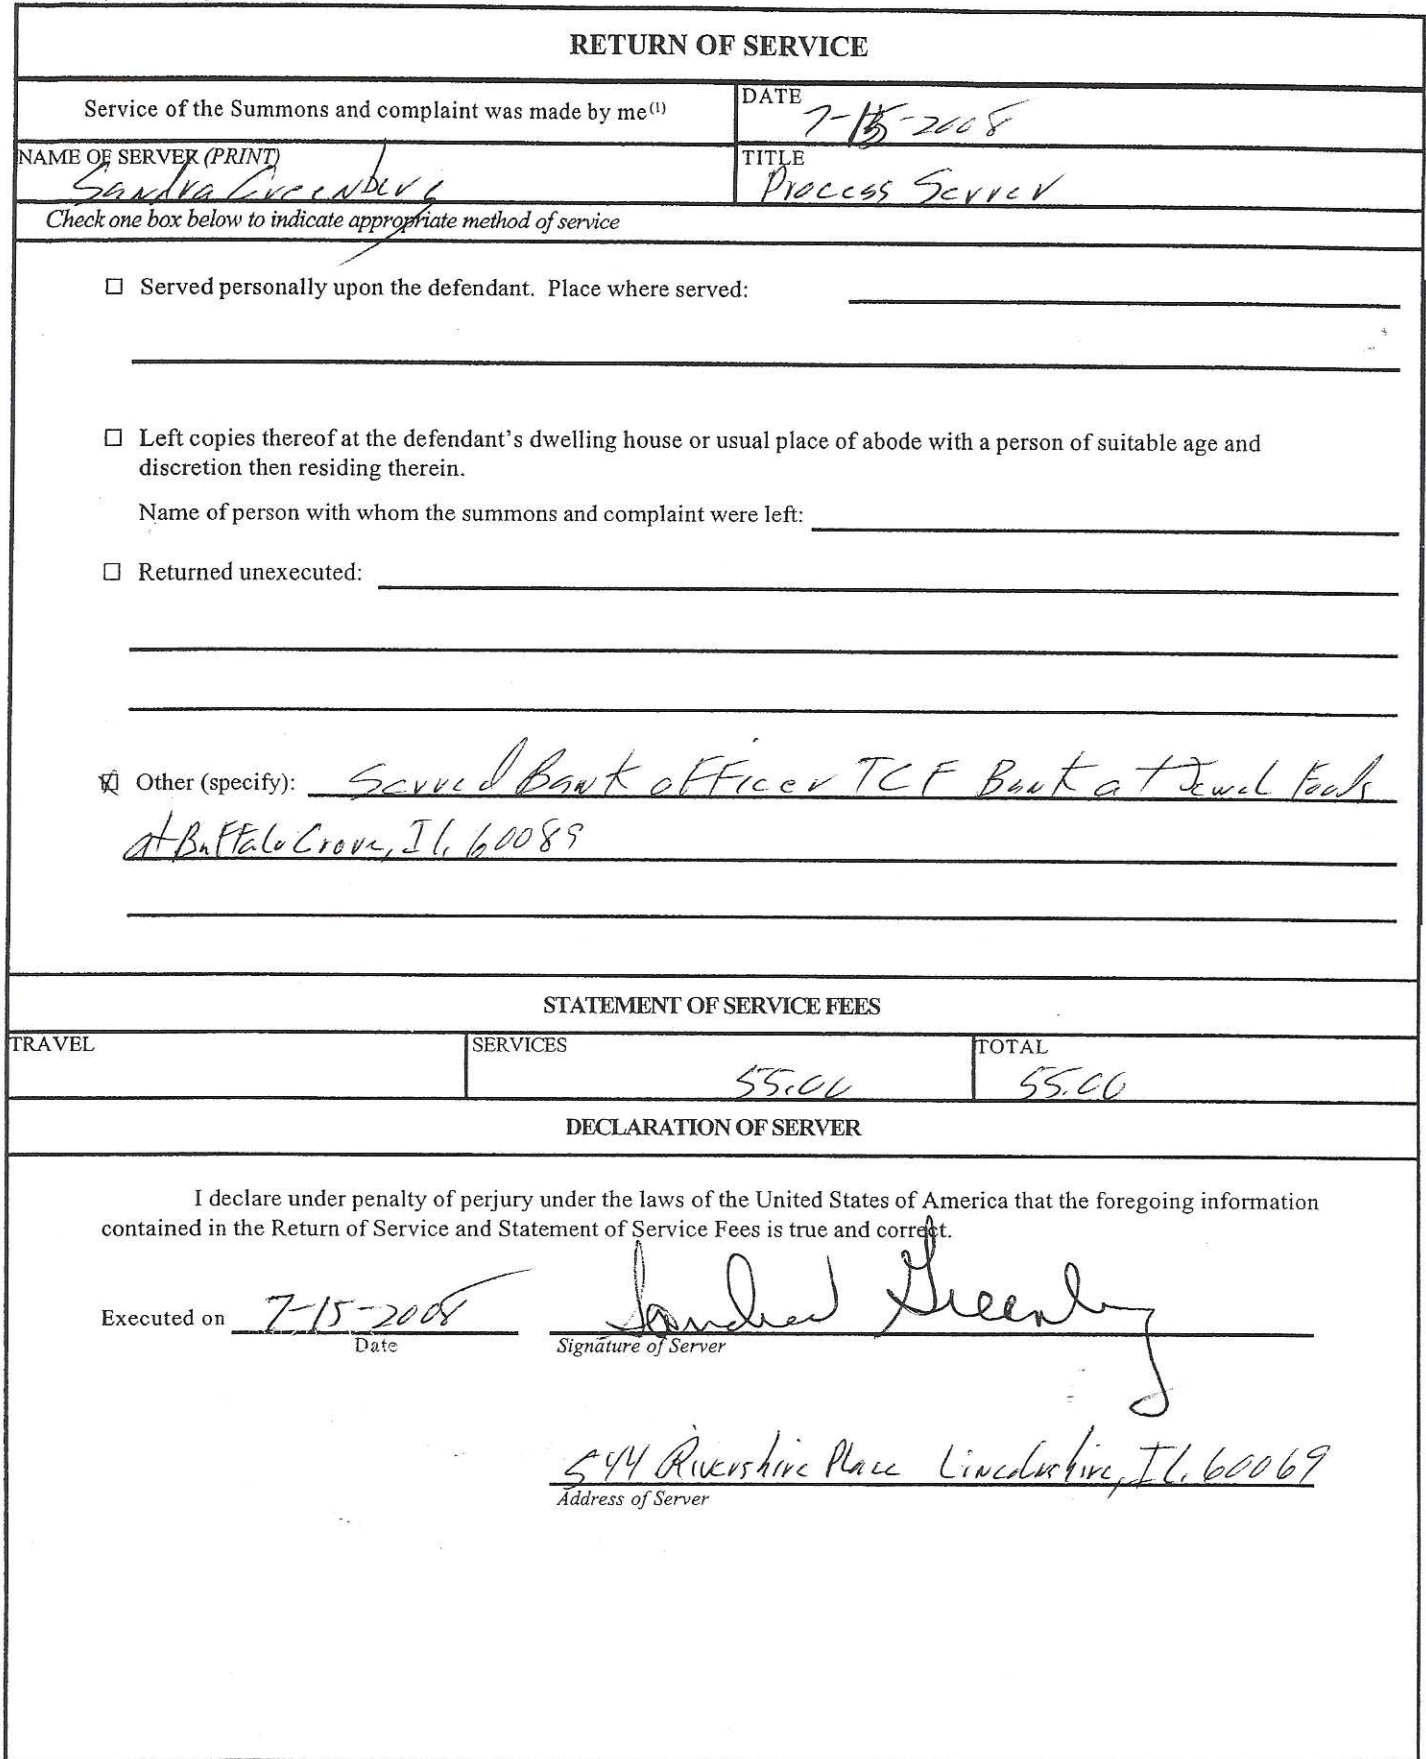 RETURN OF SERVICE
Service of the Summons and complaint was made by me(1)
DATE
7-15-2008
NAME OF SERVER (PRINT)
Sandra Greenberg
TITLE
Process Server
Check one box below to indicate appropriate method of service
☐ Served personally upon the defendant. Place where served:
☐ Left copies thereof at the defendant's dwelling house or usual place of abode with a person of suitable age and
discretion then residing therein.
Name of person with whom the summons and complaint were left:
☐ Returned unexecuted:
☒ Other (specify): Served Bank officer TCF Bank at Jewel Foods
at Buffalo Grove, Il. 60089
STATEMENT OF SERVICE FEES
TRAVEL
SERVICES
55.00
TOTAL
55.00
DECLARATION OF SERVER
I declare under penalty of perjury under the laws of the United States of America that the foregoing information
contained in the Return of Service and Statement of Service Fees is true and correct.
Executed on 7-15-2008
Sandra Greenberg
Date
Signature of Server
544 Rivershire Place Lincolnshire, IL. 60069
Address of Server